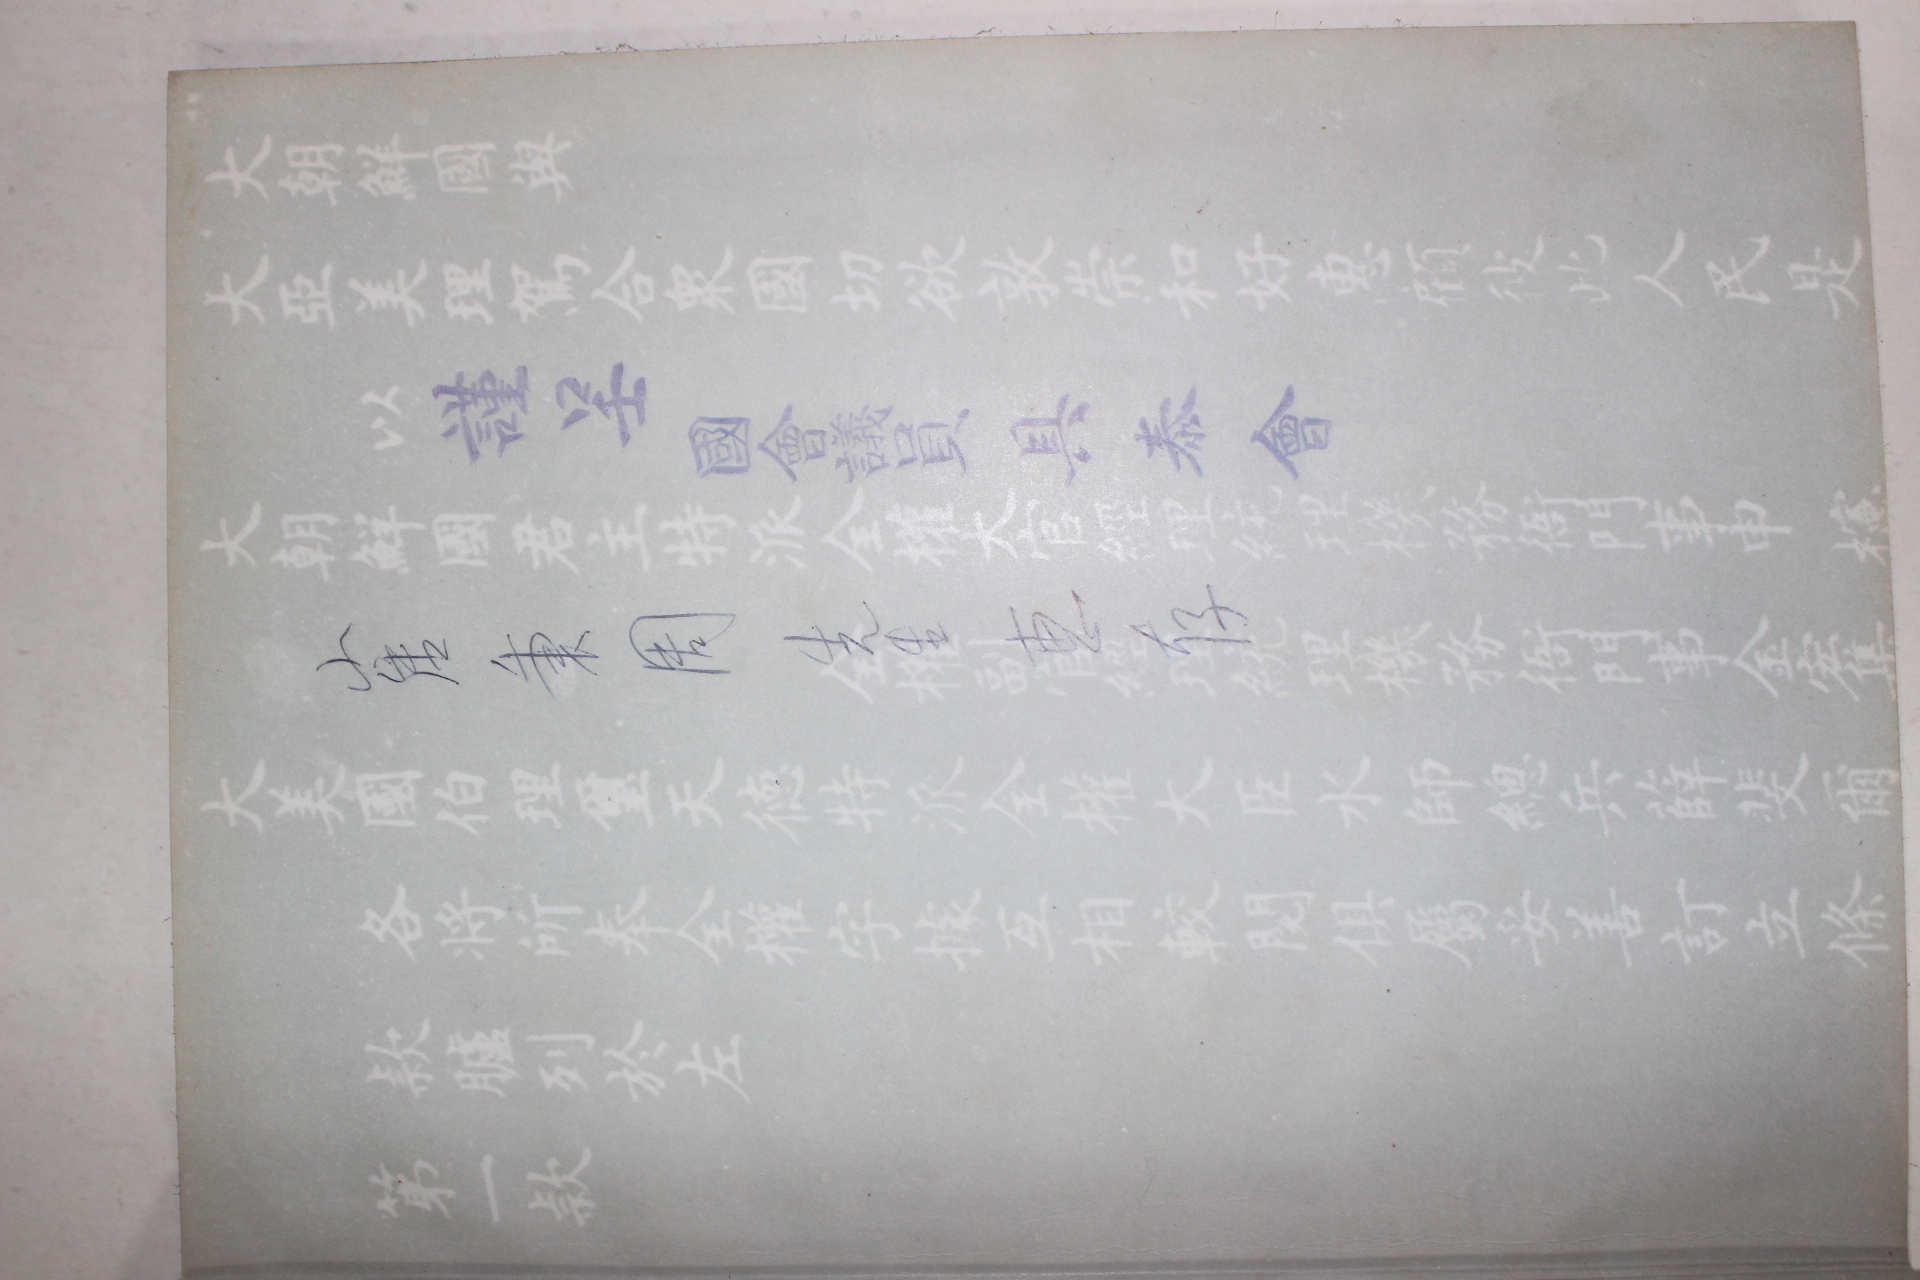 大朝鮮國與
大亞美理駕合衆國切欲敦崇和好惠顧彼此人民是
以
謹呈
國會議員 具泰會
大朝鮮國君主特派全權大官經理統理機務衙門事申櫶
先生 惠存
全權副官經理統理機務衙門事金宏集
大美國伯理璽天德特派全權大臣水師總兵薛斐爾
各將所奉全權字據互相較閱俱屬妥善訂立條
款臚列於左
第一款